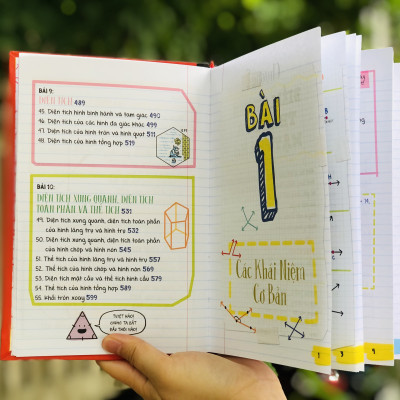 BÀI 9:
DIỆN TÍCH 489
45. Diện tích hình bình hành và tam giác 490
46. Diện tích của các hình đa giác khác 499
47. Diện tích của hình tròn và hình quạt 511
48. Diện tích của hình tổng hợp 519
BÀI 10:
DIỆN TÍCH XUNG QUANH, DIỆN TÍCH
TOÀN PHẦN VÀ THỂ TÍCH 531
49. Diện tích xung quanh, diện tích toàn phần
của hình lăng trụ và hình trụ 532
50. Diện tích xung quanh, diện tích toàn phần
của hình chóp và hình nón 545
51. Thể tích của hình lăng trụ và hình trụ 557
52. Thể tích của hình chóp và hình nón 569
53. Diện tích mặt cầu và thể tích hình cầu 579
54. Thể tích của hình tổng hợp 589
55. Khối tròn xoay 599
TUYỆT HẢO!
CHÚNG TA BẮT
ĐẦU THÔI NÀO!
BÀI
1
Các Khái Niệm
Cơ Bản